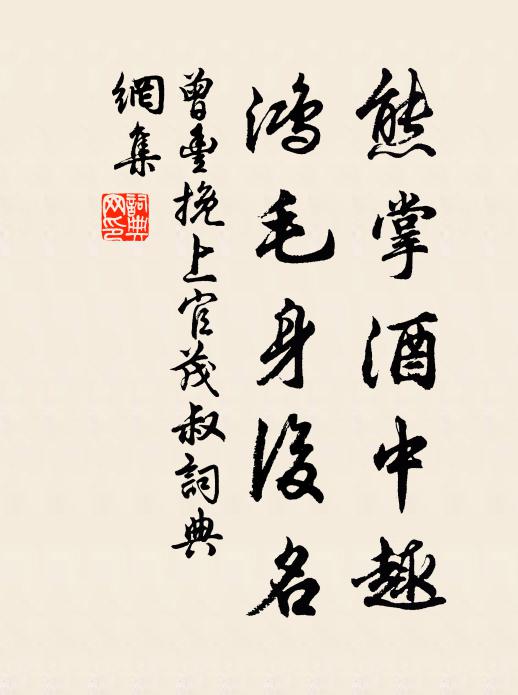 熊掌酒中趣
鸿毛身後名
曾豐挽上官茂叔詞典
網集
詞典
网印